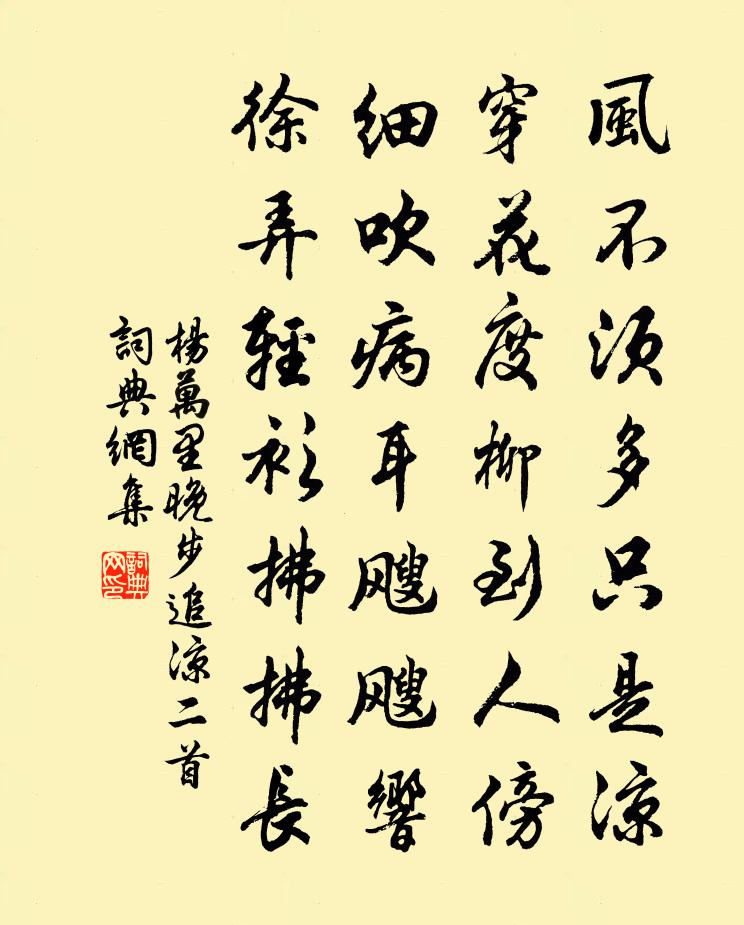 風不須多只是涼
穿花度柳到人傍
細吹病耳颼颼響
徐弄輕衫拂拂長
楊萬里晚步追涼二首
詞典網集
詞典網印